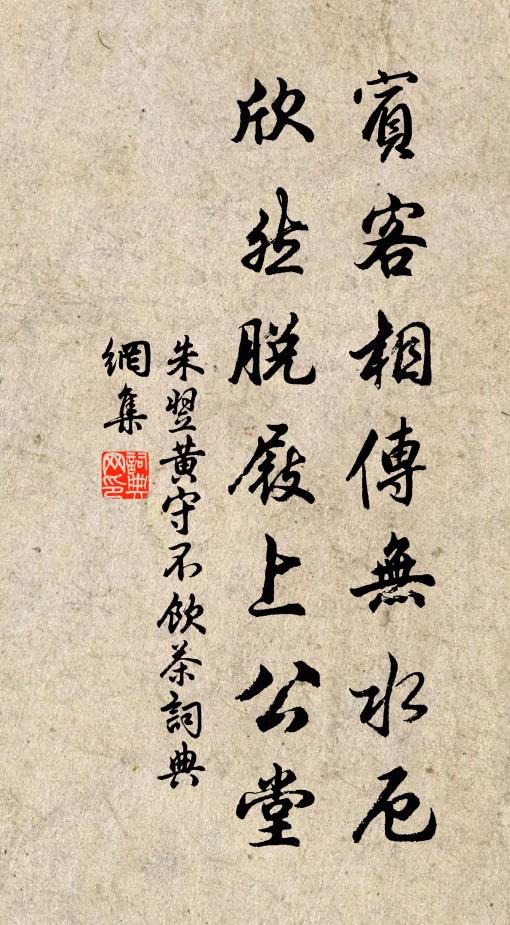 賓客相傳無水厄
欣然脫屐上公堂
朱翌黃守不飲茶詞典
網集
詞典網印